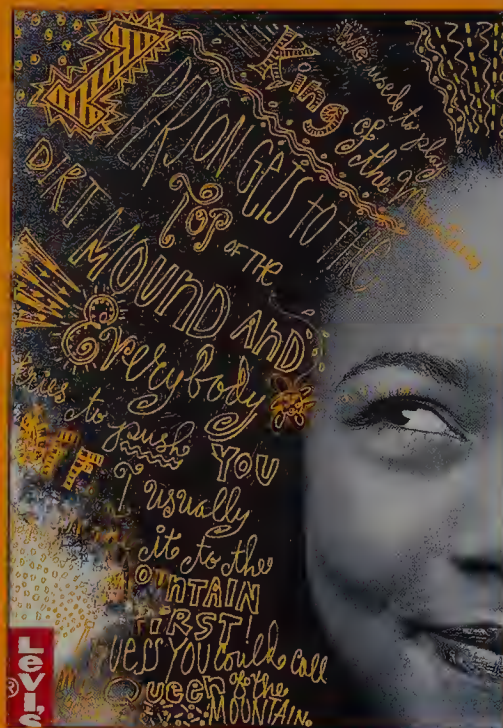 We used to play
King of the Mountain
1
PERSON GETS TO THE
TOP OF THE
DIRT MOUND AND
Everybody
tries to push YOU
OFF
I usually
it to the
OUNTAIN
FIRST!
UESS YOU could call
Queen of the
MOUNTAIN
Levi's
®